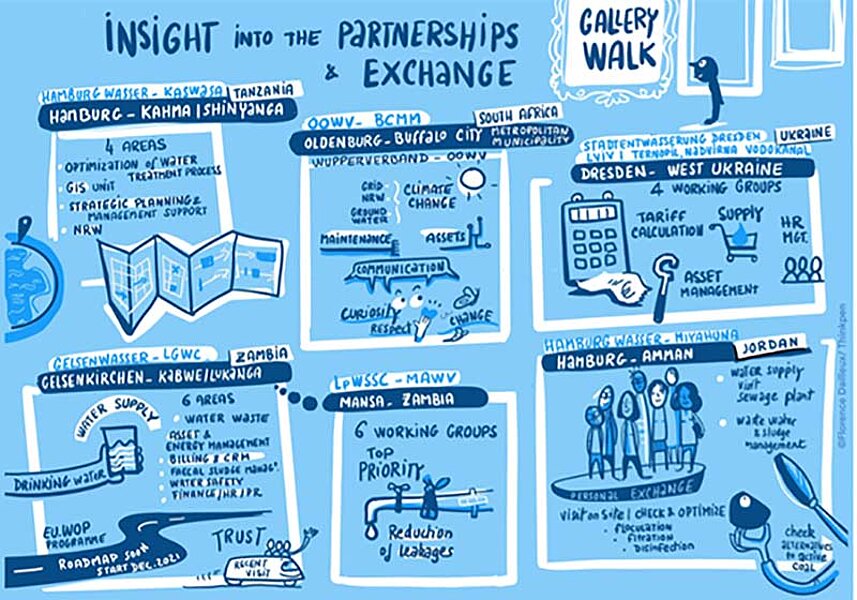 INSIGHT INTO THE PARTNERSHIPS
& EXCHANGE
GALLERY
WALK
HAMBURG WASSER - KASWASA | TANZANIA
HAMBURG - KAHMA | SHINYANGA
4 AREAS
• OPTIMIZATION OF WATER
TREATMENT PROCESS
• GIS UNIT
• STRATEGIC PLANNING &
MANAGEMENT SUPPORT
• NRW
OOWV - BCMM
SOUTH AFRICA
OLDENBURG - BUFFALO CITY METROPOLITAN
MUNICIPALITY
WUPPERVERBAND - OOWV
GRID
NRW
GROUND
WATER
CLIMATE
CHANGE
MAINTENANCE
ASSETS
COMMUNICATION
CURIOSITY
RESPECT
CHANGE
STADTENTWASSERUNG DRESDEN
UKRAINE
LVIV | TERNOPIL, NADVIRNA VODOKANAL
DRESDEN - WEST UKRAINE
4 WORKING GROUPS
TARIFF
CALCULATION
SUPPLY
HR
MGT.
ASSET
MANAGEMENT
GELSENWASSER - LGWC
ZAMBIA
GELSENKIRCHEN - KABWE/LUKANGA
WATER SUPPLY
DRINKING WATER
6 AREAS
• WATER WASTE
ASSET &
ENERGY MANAGEMENT
• BILLING & CRM
• FAECAL SLUDGE MANAG.
• WATER SAFETY
• FINANCE/HR/PR
EU.WOP
PROGRAMME
ROADMAP SOON
START DEC. 2021
TRUST
RECENT
VISIT
LpWSSC - MAWV
MANSA - ZAMBIA
6 WORKING GROUPS
TOP
PRIORITY
Reduction
of leakages
HAMBURG WASSER - MIYAHUNA
JORDAN
HAMBURG - AMMAN
• water supply
visit
sewage plant
• waste water
& sludge
management
PERSONAL EXCHANGE
VISIT ON SITE | CHECK & OPTIMIZE
• FLOCULATION
• FILTRATION
• DISINFECTION
check
alternatives
to active
coal
©Florence Dailleux/ Thinkpen